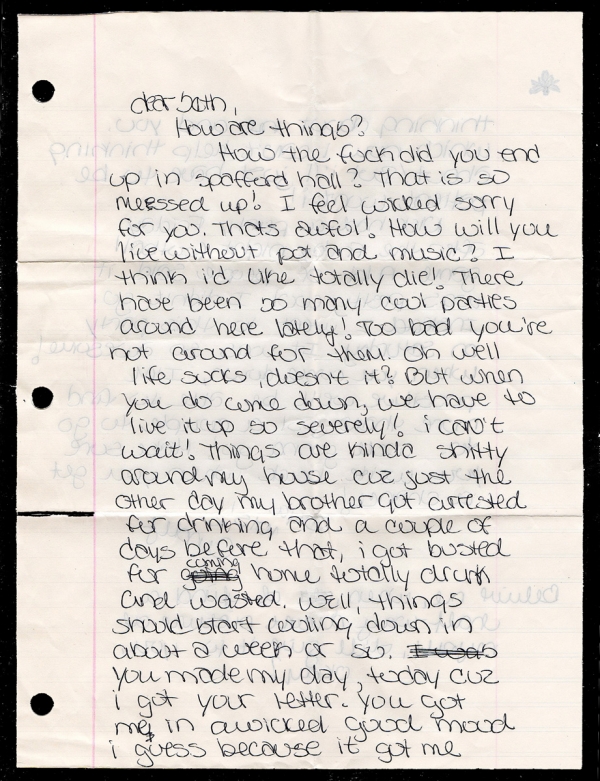 dear beth,
How are things?
How the fuck did you end
up in spafford hall? That is so
messed up! I feel wicked sorry
for you. Thats awful! How will you
live without pot and music? I
think i'd like totally die! There
have been so many cool parties
around here lately! Too bad you're
not around for them. oh well
life sucks, doesn't it? But when
you do come down, we have to
live it up so severely! i can't
wait! Things are kinda shitty
around my house cuz just the
other day my brother got arrested
for drinking and a couple of
days before that, i got busted
for coming home totally drunk
and wasted. well, things
should start cooling down in
about a week or so. I was
you made my day, today cuz
i got your letter. you got
me in a wicked good mood
i guess because it got me